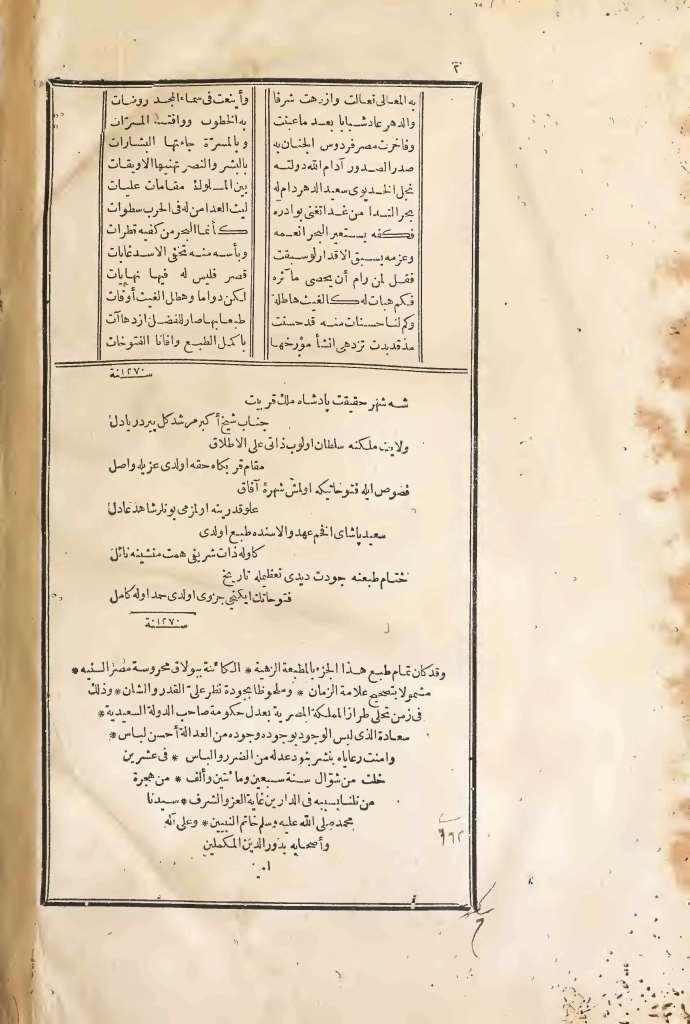 ٢
به المعالى تعالت وازدهت شرفا وأينعت فى سماء المجد روضات
والدهر عاد شبابا بعد ما عبثت به الخطوب ووافته المسرات
وفاخرت مصر فردوس الجنان به وبالمسرة جاءتها البشارات
صدر الصدور أدام الله دولته بالبشر والنصر تهنيها الاويقات
نجل الخديوى سعيد الدهر دام له بين الملوك مقامات عليات
بحر الندا من غدا تغنى بوادره ليث العدا من له فى الحرب سطوات
فكفه يستعير البحر انعمه كأنما البحر من كفيه قطرات
وعزمه يسبق الاقدار لو سبقت وبأسه منه تختفى الاسد غابات
فقل لمن رام أن يحصى مآثره قصر فليس له فيها نهايات
فكم هبات له كالغيث هاطلة لكن دواما وهطل الغيث أوقات
وكم لنا حسنات منه قد حسنت طبعا بها صار للفضل ازدهاآت
مذ قد بدت تزدهى انشأ مؤرخها باكمل الطبع وافانا الفتوحات
سنة ١٢٧٠
شه شهر حقيقت پادشاه ملك قربيت
جناب شيخ أكبر مرشد كل پير دريادل
ولايت ملكنه سلطان اولوب ذاتى على الاطلاق
مقام قربكاه حقه اولدى عزيله واصل
فصوص ايله فتوحاتيكه اولمش شهرهٔ آفاق
علو قدرينه اولمزمى بونلر شاهد عادل
سعيد پاشاى افخم عهد والاسنده طبع اولدى
كاوله ذات شريفى همت منشينه نائل
ختام طبعنه جودت ديدى تعظيمله تاريخ
فتوحاتك ايكنجى جزوى اولدى حمد اوله كامل
سنة ١٢٧٠
وقد كان تمام طبع هذا الجزء بالمطبعة الزهية * الكائنة ببولاق محروسة مصر السنيه *
مشمولا بتصحيح علامة الزمان * وملحوظا بجودة نظر على القدر والشان * وذلك
فى زمن تحلى طراز المملكة المصرية بعدل حكومة صاحب الدولة السعيدية *
سعادة الذى لبس الوجود بوجوده وجوده من العدالة أحسن لباس *
وامنت رعاياه بنشر بنود عدله من الضرر والباس * فى عشرين
خلت من شوّال سنة سبعين ومائتين وألف * من هجرة
من نلنا بسببه فى الدارين غاية العز والشرف * سيدنا
محمد صلى الله عليه وسلم خاتم النبيين * وعلى آله
وأصحابه بدور الدين المكملين
٦٩٢